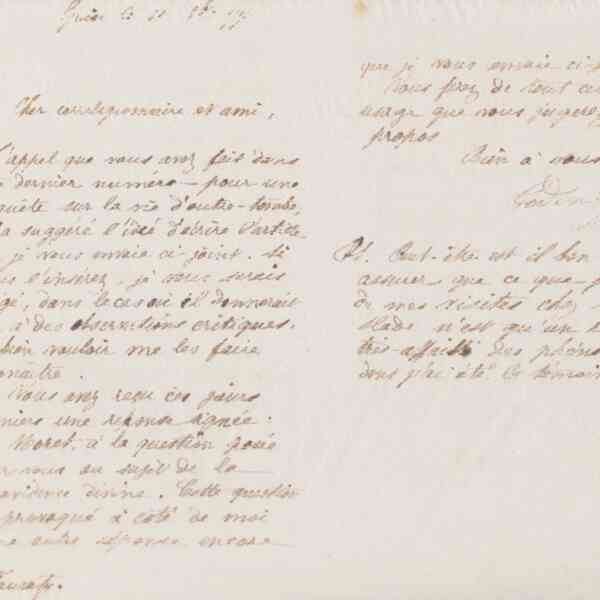 Cher correligionnaire et ami,
l'appel que vous avez fait dans
dernier numéro - pour une
quête sur la vie d'outre-tombe,
a suggéré l'idée d'écrire l'article
je vous envoie ci-joint. Si
l'insérez, je vous serais
gé, dans le cas où il donnerait
à des observations critiques,
bien vouloir me les faire
naître.
Vous avez reçu ces jours
niers une réponse signée :
Moret, à la question posée
vous au sujet de la
ovidence divine. Cette question
provoqué à côté de moi
ne autre réponse encore
que je vous envoie ci-
Vous ferez de tout ce
usage que vous jugerez
propos
Bien à vous
Godin
PS. Peut-être est il bon
assurer que ce que
de mes visites chez
n'est que un
très-affaibli des phéno
dont j'ai été le témoin